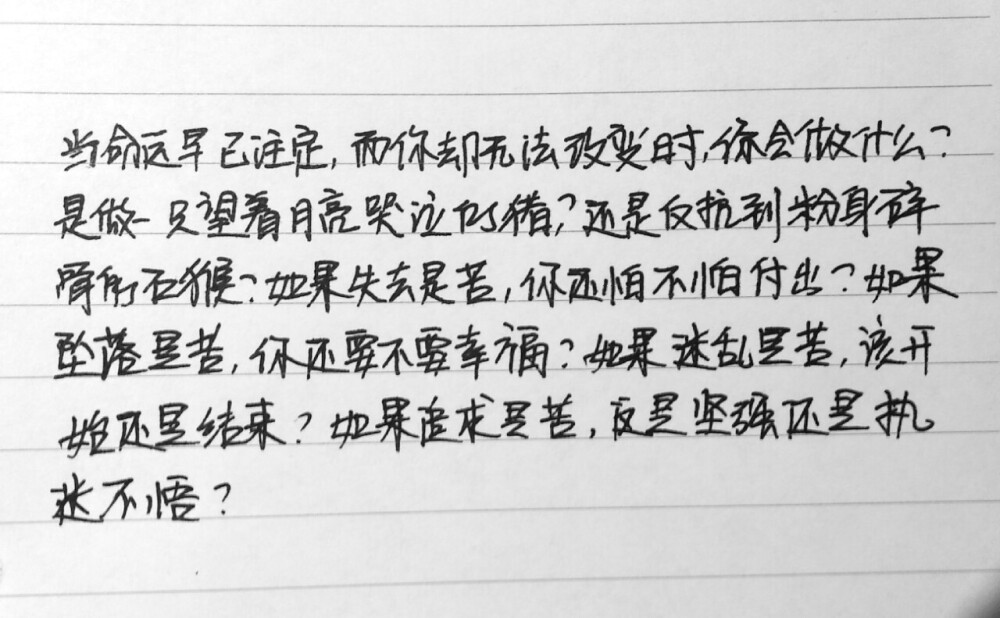 当命运早已注定,而你却无法改变时,你会做什么?
是做一只望着月亮哭泣的猪?还是反抗到粉身碎
骨的石猴?如果失去是苦,你还怕不怕付出?如果
坠落是苦,你还要不要幸福?如果迷乱是苦,该开
始还是结束?如果追求是苦,反是坚强还是执
迷不悟?